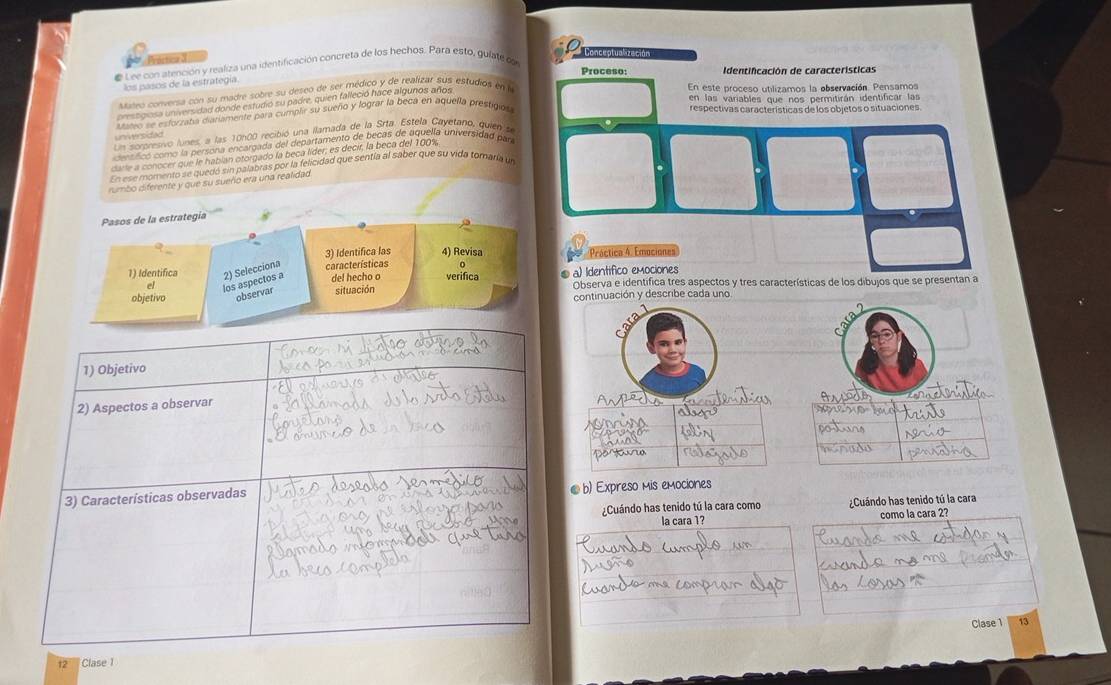 Práctica 3
Lee con atención y realiza una identificación concreta de los hechos. Para esto, guíate con
los pasos de la estrategia.
Mateo conversa con su madre sobre su deseo de ser médico y de realizar sus estudios en la
prestigiosa universidad donde estudió su padre, quien falleció hace algunos años.
Mateo se esforzaba diariamente para cumplir su sueño y lograr la beca en aquella prestigiosa
universidad.
Un sorpresivo lunes, a las 10h00 recibió una llamada de la Srta. Estela Cayetano, quien se
identificó como la persona encargada del departamento de becas de aquella universidad para
darle a conocer que le habían otorgado la beca líder; es decir, la beca del 100%.
En ese momento se quedó sin palabras por la felicidad que sentía al saber que su vida tomaría un
rumbo diferente y que su sueño era una realidad.
Pasos de la estrategia
1) Identifica
el
objetivo
2) Selecciona
los aspectos a
observar
3) Identifica las
características
del hecho o
situación
4) Revisa
o
verifica
1) Objetivo
Conocer si Mateo obtuvo la
beca para estudiar medicina
2) Aspectos a observar
El esfuerzo de Mateo
La llamada de la srta Estela
Cayetano
El anuncio de la beca
3) Características observadas
Mateo deseaba ser médico
y estudiar en una universidad
se esforzo para
una
llamada informandole que tuvo
La beca completa
12 Clase 1
Conceptualización
Proceso:
Identificación de características
En este proceso utilizamos la observación. Pensamos
en las variables que nos permitirán identificar las
respectivas características de los objetos o situaciones.
Práctica 4. Emociones
a) Identifico emociones
Observa e identifica tres aspectos y tres características de los dibujos que se presentan a
continuación y describe cada uno.
Cara 1
Cara 2
Aspecto caracteristicas
sonrisa alegre
feliz
postura relajado
Aspecto caracteristica
triste
postura seria
mirada pensativa
b) Expreso mis emociones
¿Cuándo has tenido tú la cara como
la cara 1?
Cuando cumplo un
sueño
cuando me compran algo
¿Cuándo has tenido tú la cara
como la cara 2?
Cuando me castigan y
cuando no me
las cosas
Clase 1 13